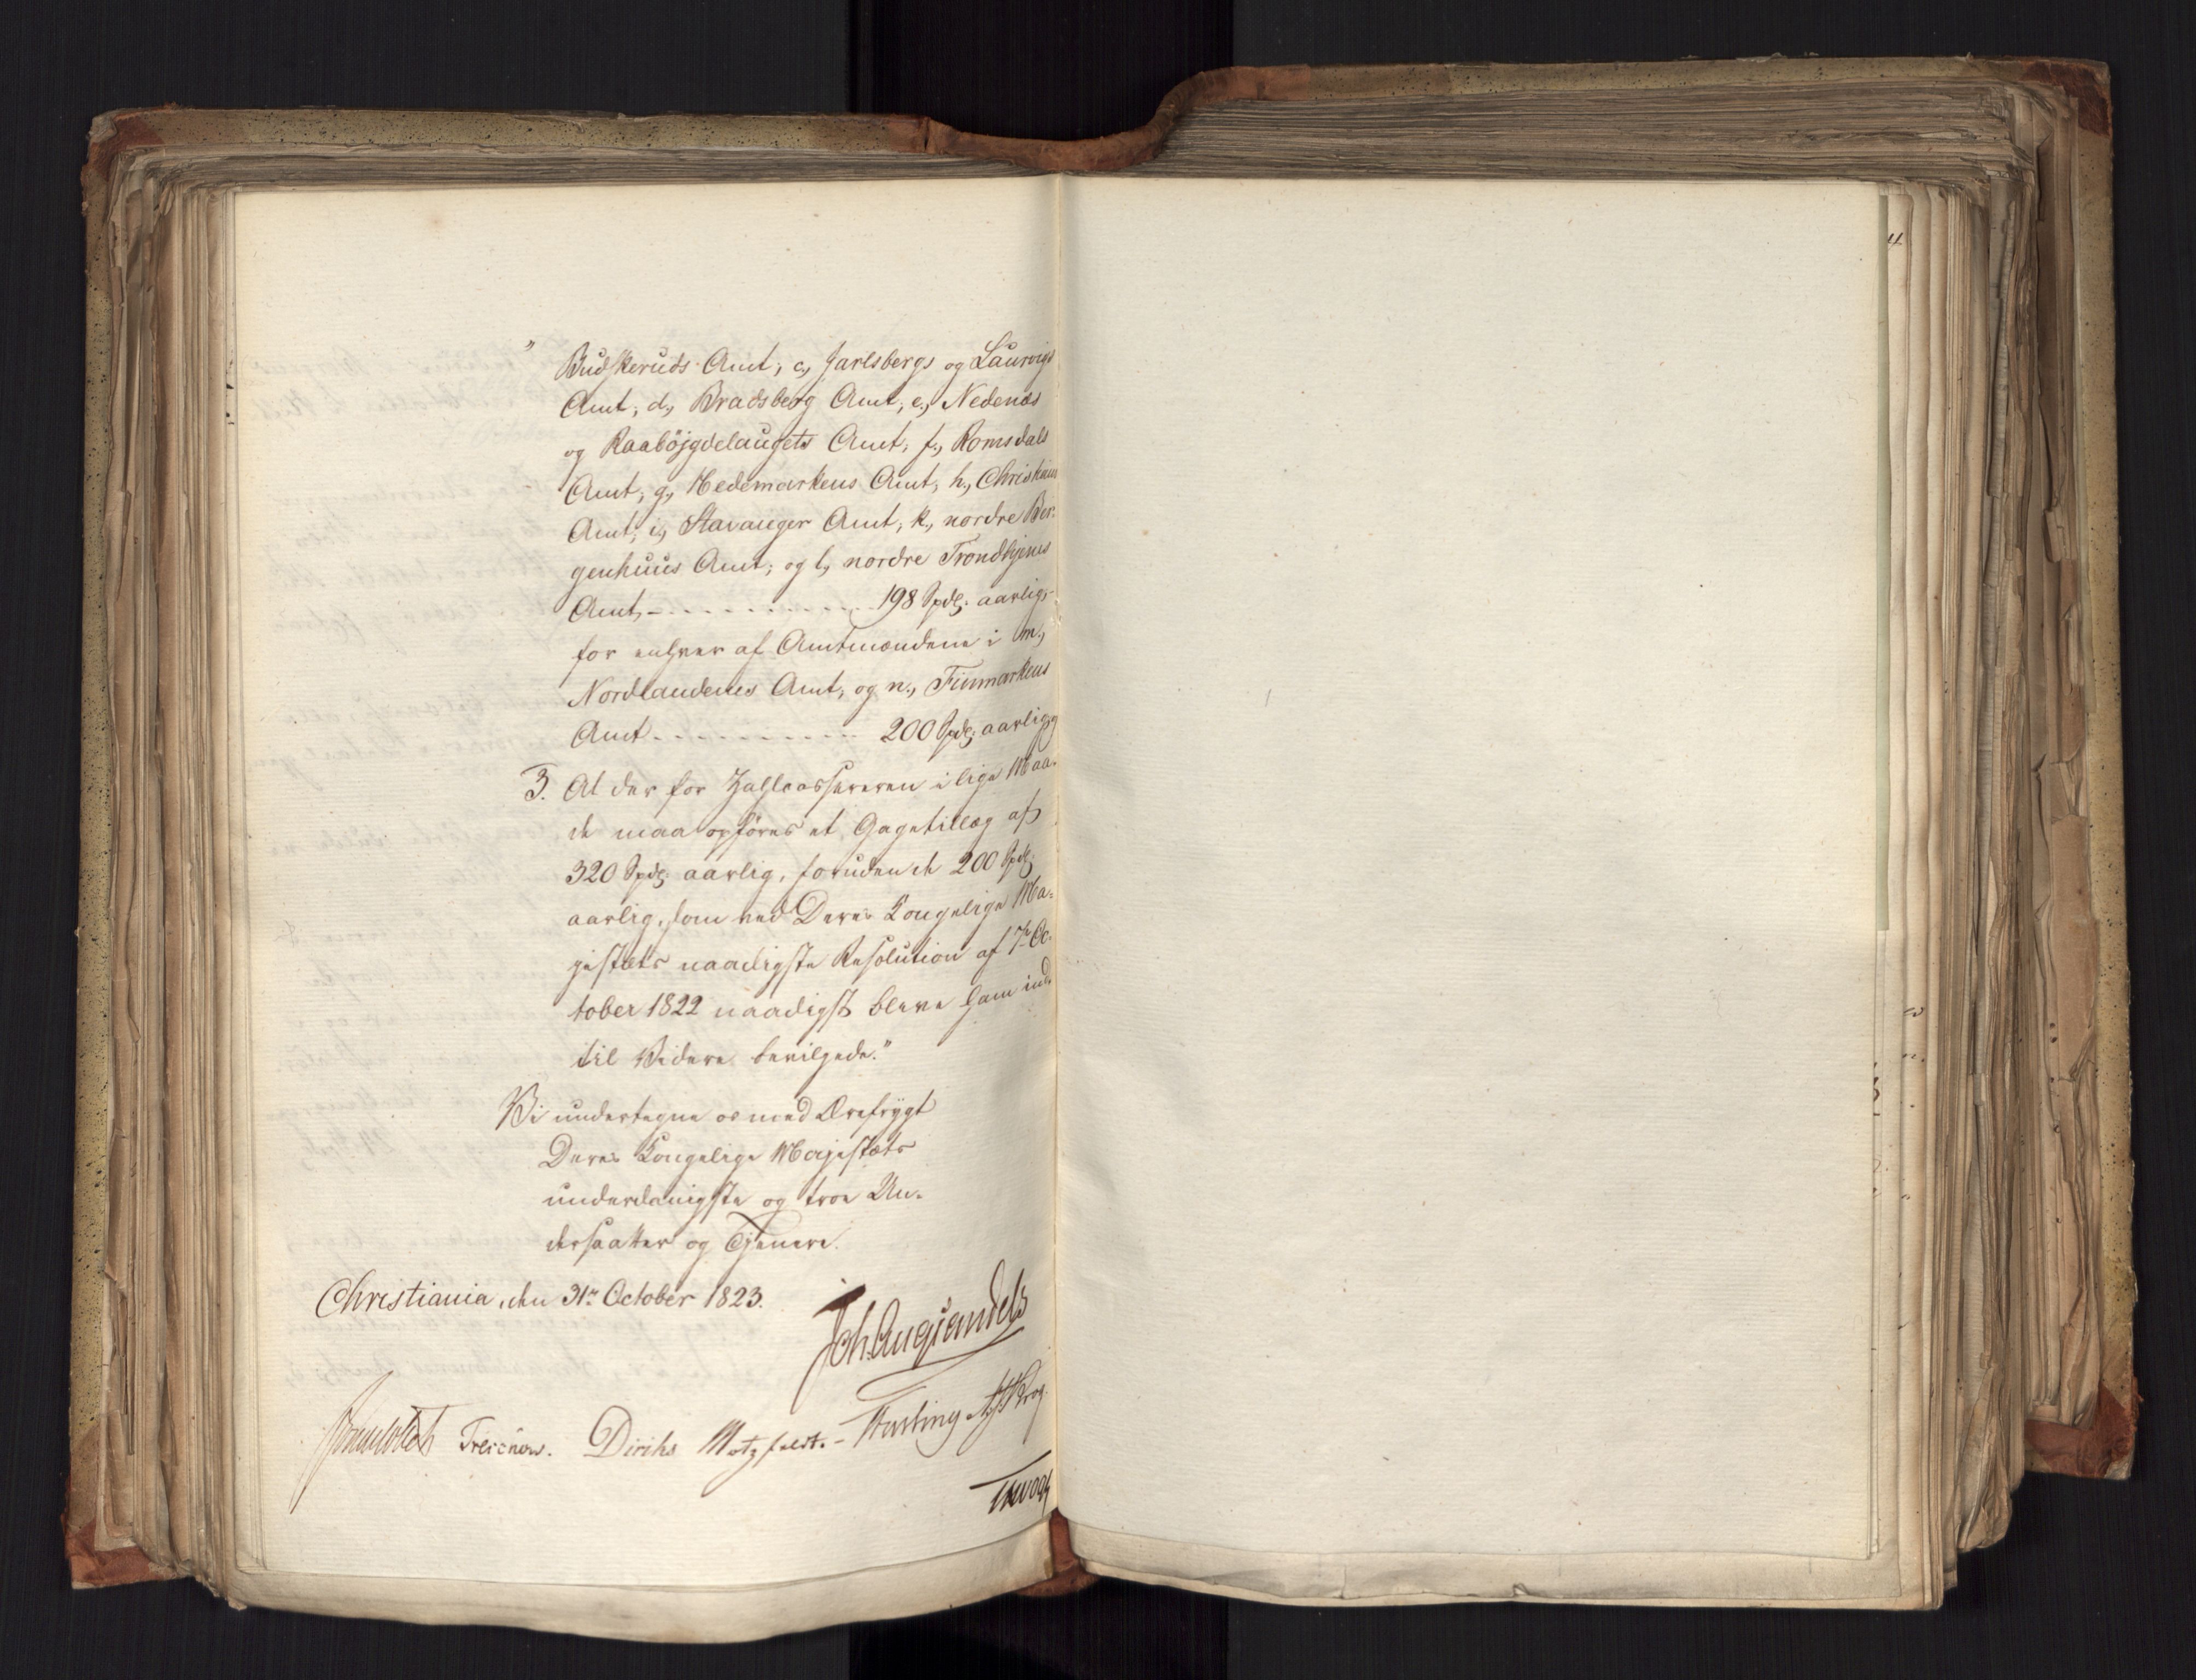 " Budskeruds Amt; c, Jarlsbergs og Laurvigs
Amt; d., Bradsberg Amt; e., Nedenæs
og Raabøjgdelaugets Amt; f., Romsdals
Amt; g., Hedemarkens Amt; h., Christians
Amt; i, Stavanger Amt; k., nordre Ber-
genhuus Amt; og l, nordre Trondhjems
Amt, - - - - - - - - 198 Spdlr. aarlig,-
for enhver af Amtmændene i m.,
Nordlandenes Amt; og n., Finmarkens
Amt - - - - - - - - - 200 Spdlr. aarlig, og
3. At der for Zahlcassereren i lige Maa-
de maa opføres et Gagetillæg af
320 Spdlr. aarlig, foruden de 200 Spdlr.
aarlig, som ved Deres Kongelige Ma-
jestæts naadigste Resolution af 7de Oc-
tober 1822 naadigst bleve ham ind-
til Videre bevilgede."
Vi undertegne os med Ærefrygt
Deres Kongelige Majestæts
underdanigste og troe Un-
dersaatter og Tjenere.
Christiania, den 31te October 1823.
Joh. Aug. Sandels
Sommerfeldt Treschow. Dirichs Motzfeldt. - Fasting Krog